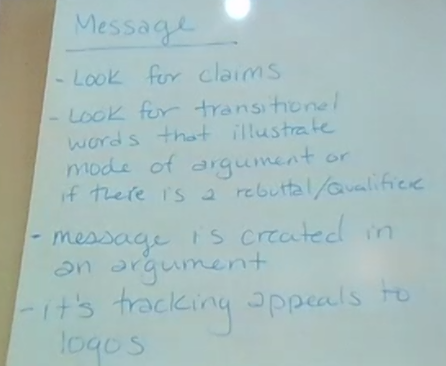 Message
- Look for claims
- Look for transitional
words that illustrate
mode of argument or
if there is a rebuttal/Qualifier
- message is created in
an argument
- it's tracking appeals to
logos